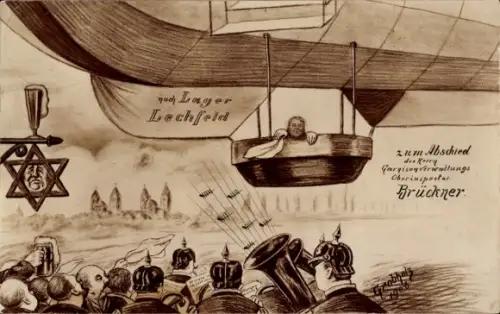 nach Lager
Lechfeld
zum Abschied
des Herrn
Garnisonverwaltungs
Oberinspektor
Brückner.